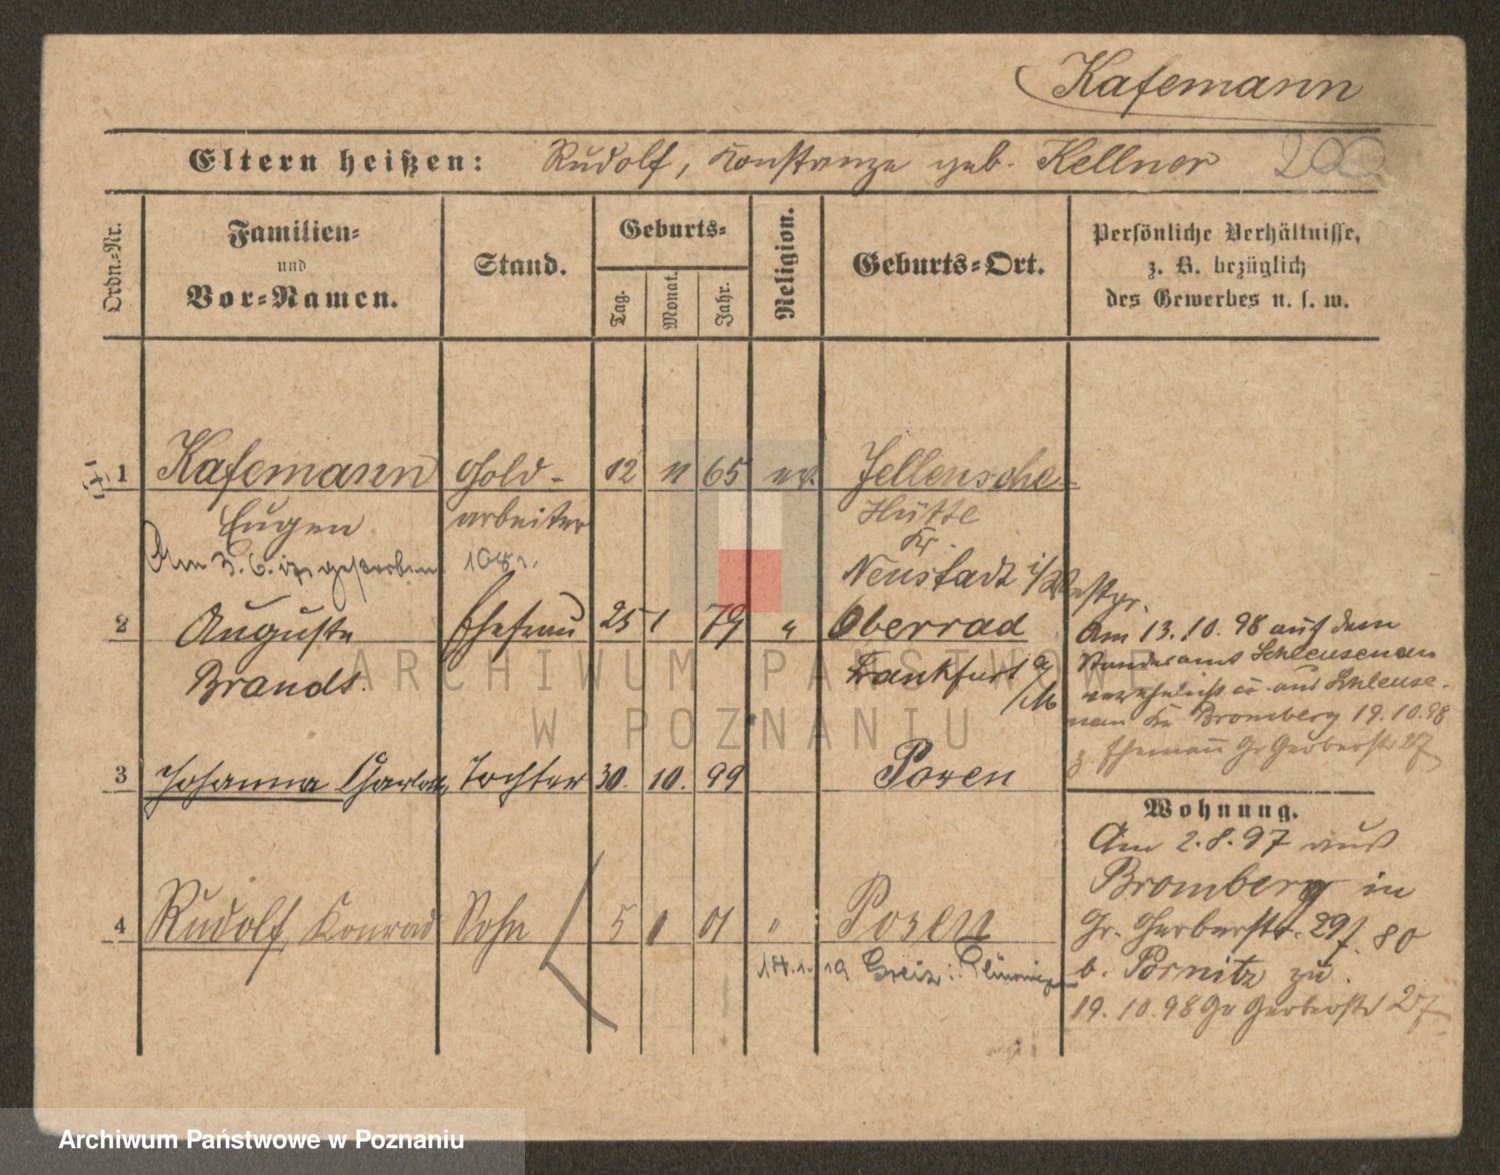 Kafemann
Eltern heißen: Rudolf, Konstanze geb. Kellner 200
Ordn.-Nr.
Familien-
und
Vor-Namen.
Stand.
Geburts-
Tag.
Monat.
Jahr.
Religion.
Geburts-Ort.
Persönliche Verhältnisse,
z. B. bezüglich
des Gewerbes u. s. w.
1 Kafemann Gold- 12 11 65 ev. Jellensche-
Eugen arbeiter Hütte
Kr.
Am 3. 6. gestorben. Neustadt i/Westpr.
2 Auguste Ehefrau 25 1 79 " Oberrad
Brandt. Frankfurt a/M
Am 13.10.98 auf dem
Standesamt Schleusenau
verehelicht u. aus Schleuse-
nau Kr. Bromberg 19.10.98
z. Ehemann Gr Gerberstr 27
3 Johanna Charlotte Tochter 30. 10. 99 Posen
Wohnung.
Am 2.8.97 aus
Bromberg in
Gr. Gerberstr. 29 f. 80
b. Pornitz zu.
19.10.98 Gr Gerberstr 27
4 Rudolf, Konrad Sohn 5 1 01 " Posen
19 Greiz: Thüringen
ARCHIWUM PAŃSTWOWE
W POZNANIU
Archiwum Państwowe w Poznaniu